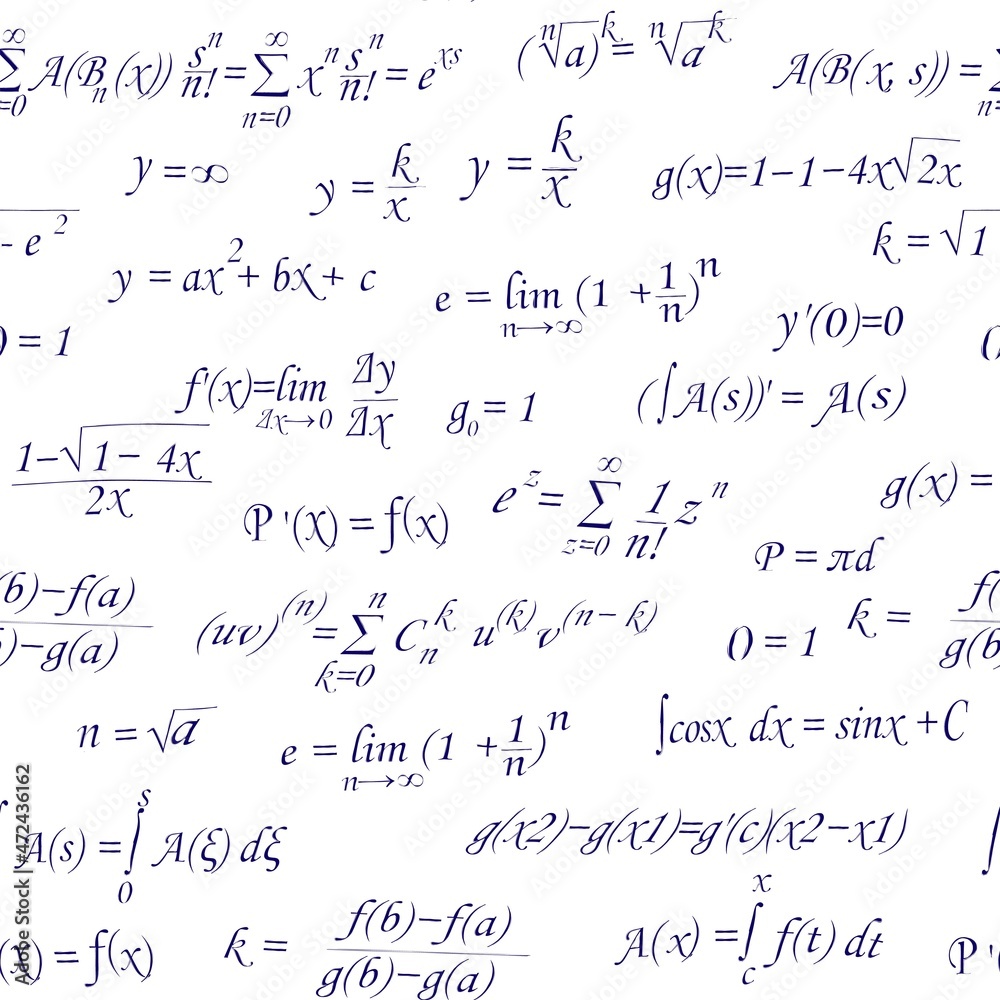 ∑_{n=0}^{∞} A(B_n(x)) s^n/n! = ∑_{n=0}^{∞} x^n s^n/n! = e^{xs}
(ⁿ√a)^k = ⁿ√a^k
A(B(x, s)) =
y = ∞
y = k/x
y = k/x
g(x)=1−1−4x√2x
- e^2
k = √1
y = ax^2 + bx + c
e = lim_{n→∞} (1 + 1/n)^n
y'(0)=0
) = 1
f'(x)=lim_{Δx→0} Δy/Δx
g_0 = 1
(∫A(s))' = A(s)
(1−√1− 4x)/2x
P '(x) = f(x)
e^z = ∑_{z=0}^{∞} 1/n! z^n
g(x) =
P = πd
(b)−f(a)/)−g(a)
(uv)^{(n)} = ∑_{k=0}^{n} C_n^k u^{(k)} v^{(n− k)}
0 = 1
k = f(/g(b
n = √a
e = lim_{n→∞} (1 + 1/n)^n
∫cosx dx = sinx +C
A(s) = ∫_0^s A(ξ) dξ
g(x2)−g(x1)=g'(c)(x2−x1)
(x) = f(x)
k = f(b)−f(a)/g(b)−g(a)
A(x) = ∫_c^x f(t) dt
P '(
Adobe Stock | #472436162